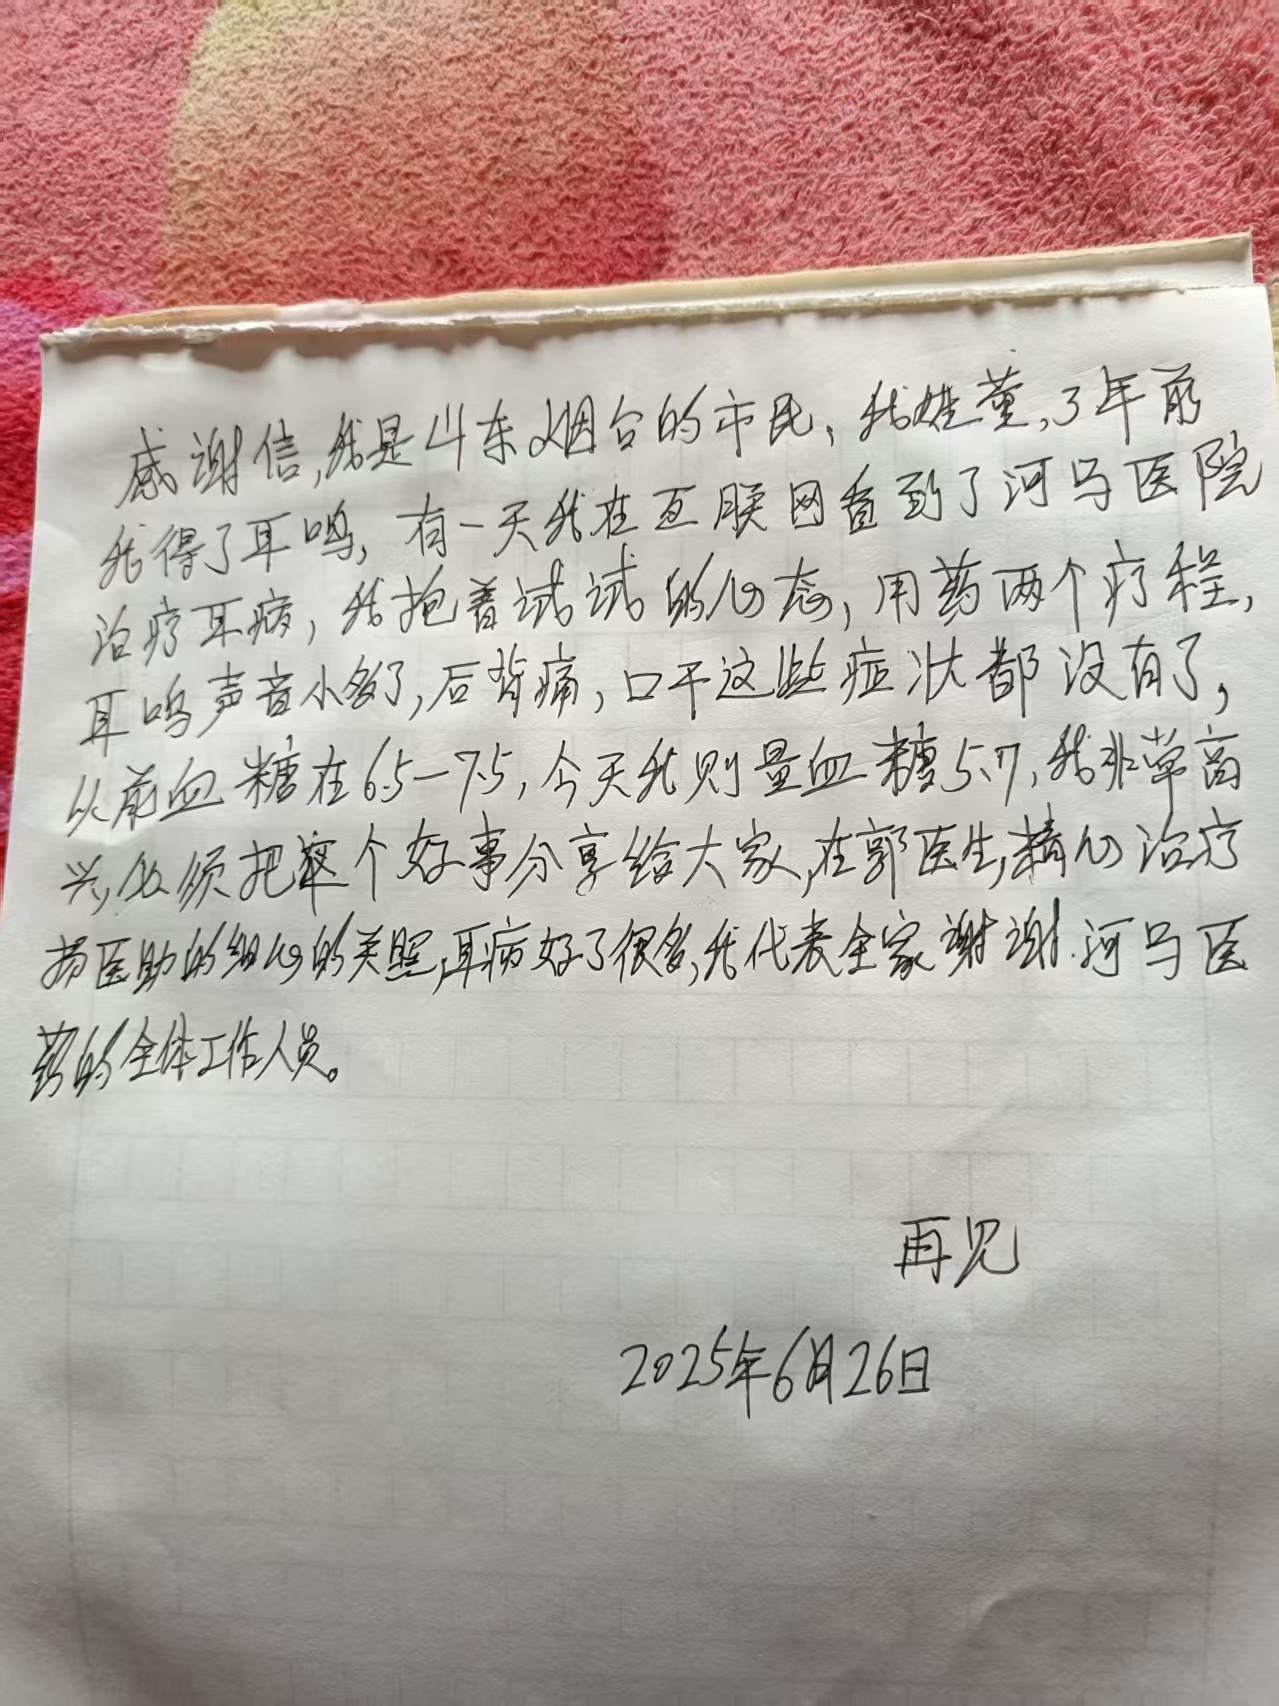 感谢信,我是山东烟台的市民、我姓董,3年前
我得了耳鸣,有一天我在互联网看到了河马医院
治疗耳病,我抱着试试的心态,用药两个疗程,
耳鸣声音小多了,后背痛,口干这些症状都没有了,
从前血糖在6.5—7.5,今天我则量血糖5.7,我非常高
兴,必须把这个好事分享给大家,在郭医生,精心治疗
医助的细心的关照,耳病好了很多,我代表全家谢谢.河马医
药的全体工作人员。
再见
2025年6月26日